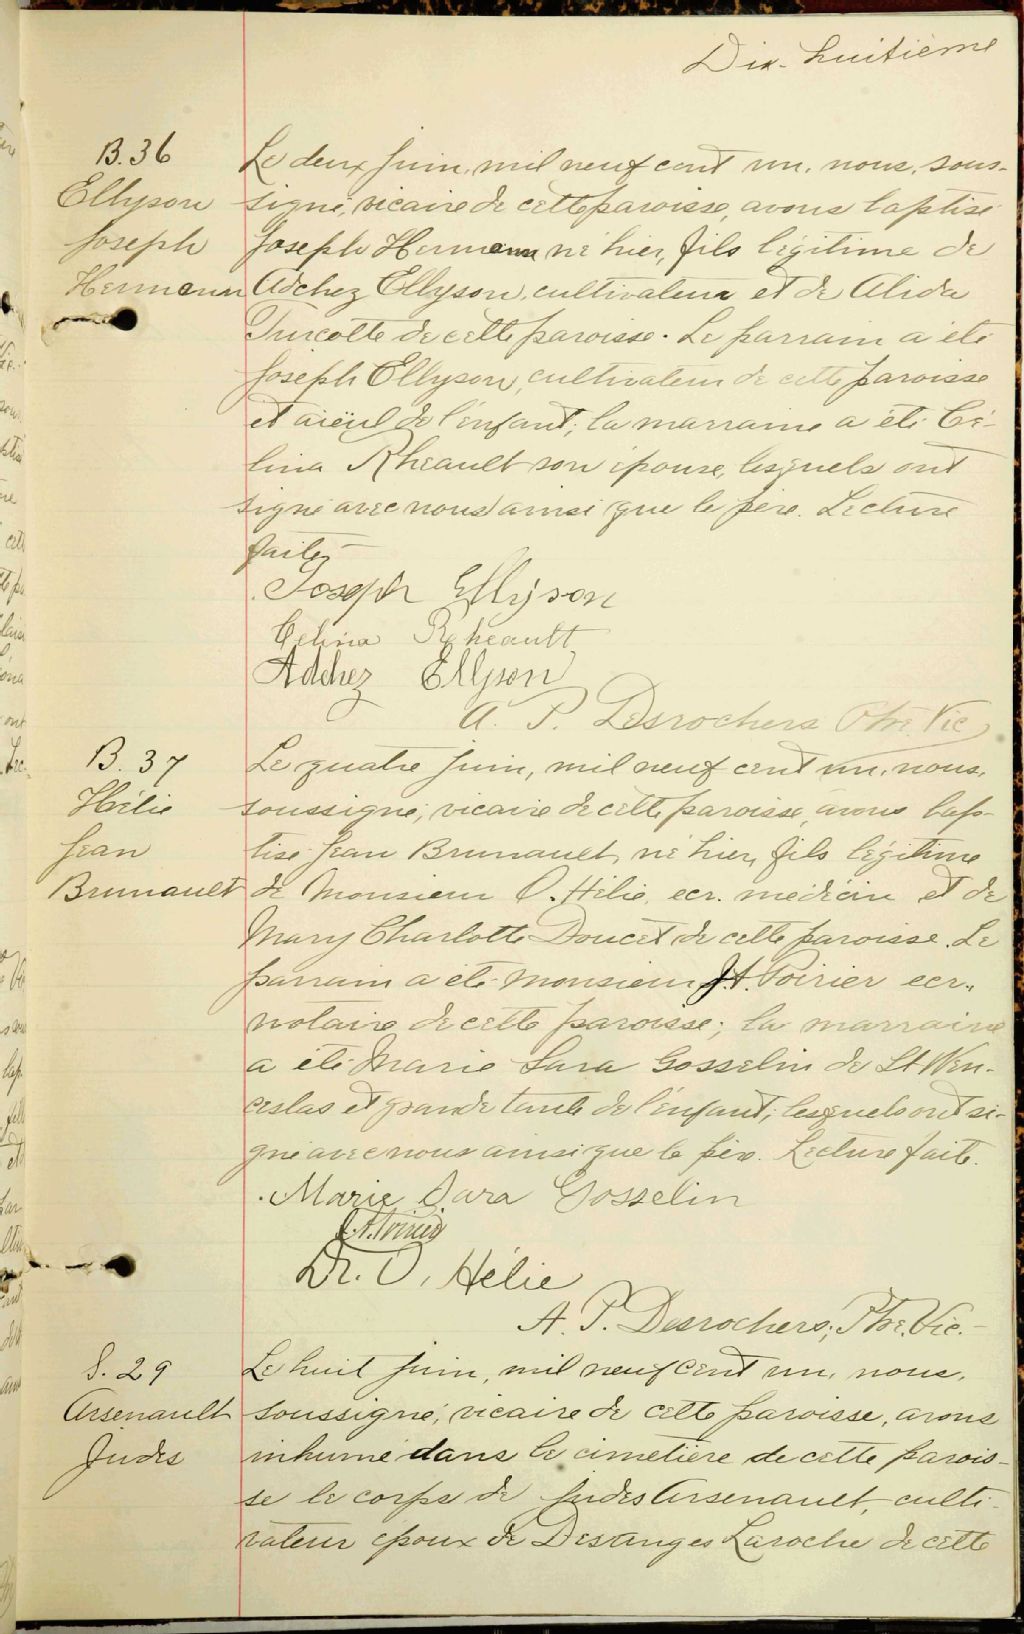 Dix-huitième
B. 36
Ellyson
Joseph
Hermann
Le deux juin, mil neuf cent un, nous, sous-
signé, vicaire de cette paroisse, avons baptisé
Joseph Hermann né hier, fils légitime de
Adchez Ellyson, cultivateur et de Alida
Turcotte de cette paroisse. Le parrain a été
Joseph Ellyson, cultivateur de cette paroisse
et aïeul de l'enfant; la marraine a été Cé-
lina Rheault son épouse, lesquels ont
signé avec nous ainsi que le père. Lecture
faite,
Joseph Ellyson
Celina Rheault
Adchez Ellyson
A. P. Desrochers Ptre. Vic
B. 37
Hélie
Jean
Brunault
Le quatre juin, mil neuf cent un, nous,
soussigné, vicaire de cette paroisse, avons bap-
tisé Jean Brunault, né hier, fils légitime
de Monsieur O. Hélie, ecr. médecin et de
Mary Charlotte Doucet de cette paroisse. Le
parrain a été Monsieur J.A. Poirier ecr.,
notaire de cette paroisse; la marraine
a été Marie Sara Gosselin de St Wen-
ceslas et grande tante de l'enfant; lesquels ont si-
gné avec nous ainsi que le père. Lecture faite.
Marie Sara Gosselin
J.A. Poirier
Dr. O. Hélie
A. P. Desrochers, Ptre. Vic.
S. 29
Arsenault
Judes
Le huit juin, mil neuf cent un, nous,
soussigné, vicaire de cette paroisse, avons
inhumé dans le cimetière de cette parois-
se le corps de Judes Arsenault, culti-
vateur époux de Desanges Laroche de cette